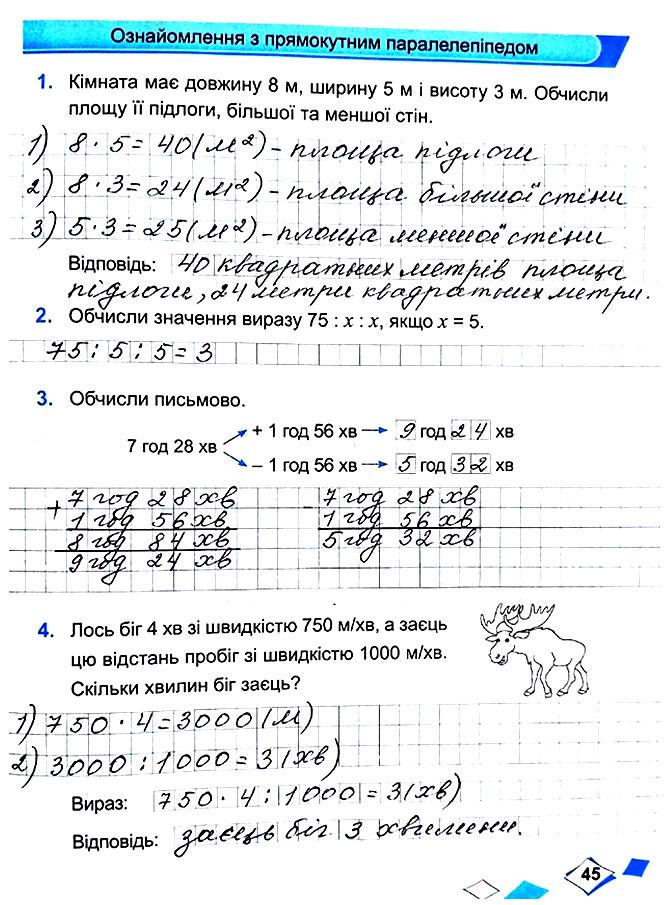 Ознайомлення з прямокутним паралелепіпедом
1. Кімната має довжину 8 м, ширину 5 м і висоту 3 м. Обчисли
площу її підлоги, більшої та меншої стін.
1) 8 · 5 = 40 (м²) - площа підлоги
2) 8 · 3 = 24 (м²) - площа більшої стіни
3) 5 · 3 = 25 (м²) - площа меншої стіни
Відповідь: 40 квадратних метрів площа
підлоги, 24 метри квадратних метри.
2. Обчисли значення виразу 75 : x : x, якщо x = 5.
75 : 5 : 5 = 3
3. Обчисли письмово.
+ 1 год 56 хв → 9 год 24 хв
7 год 28 хв
– 1 год 56 хв → 5 год 32 хв
+ 7 год 28 хв - 7 год 28 хв
1 год 56 хв 1 год 56 хв
8 год 84 хв 5 год 32 хв
9 год 24 хв
4. Лось біг 4 хв зі швидкістю 750 м/хв, а заєць
цю відстань пробіг зі швидкістю 1000 м/хв.
Скільки хвилин біг заєць?
1) 750 · 4 = 3000 (м)
2) 3000 : 1000 = 3 (хв)
Вираз: 750 · 4 : 1000 = 3 (хв)
Відповідь: заєць біг 3 хвилини.
45